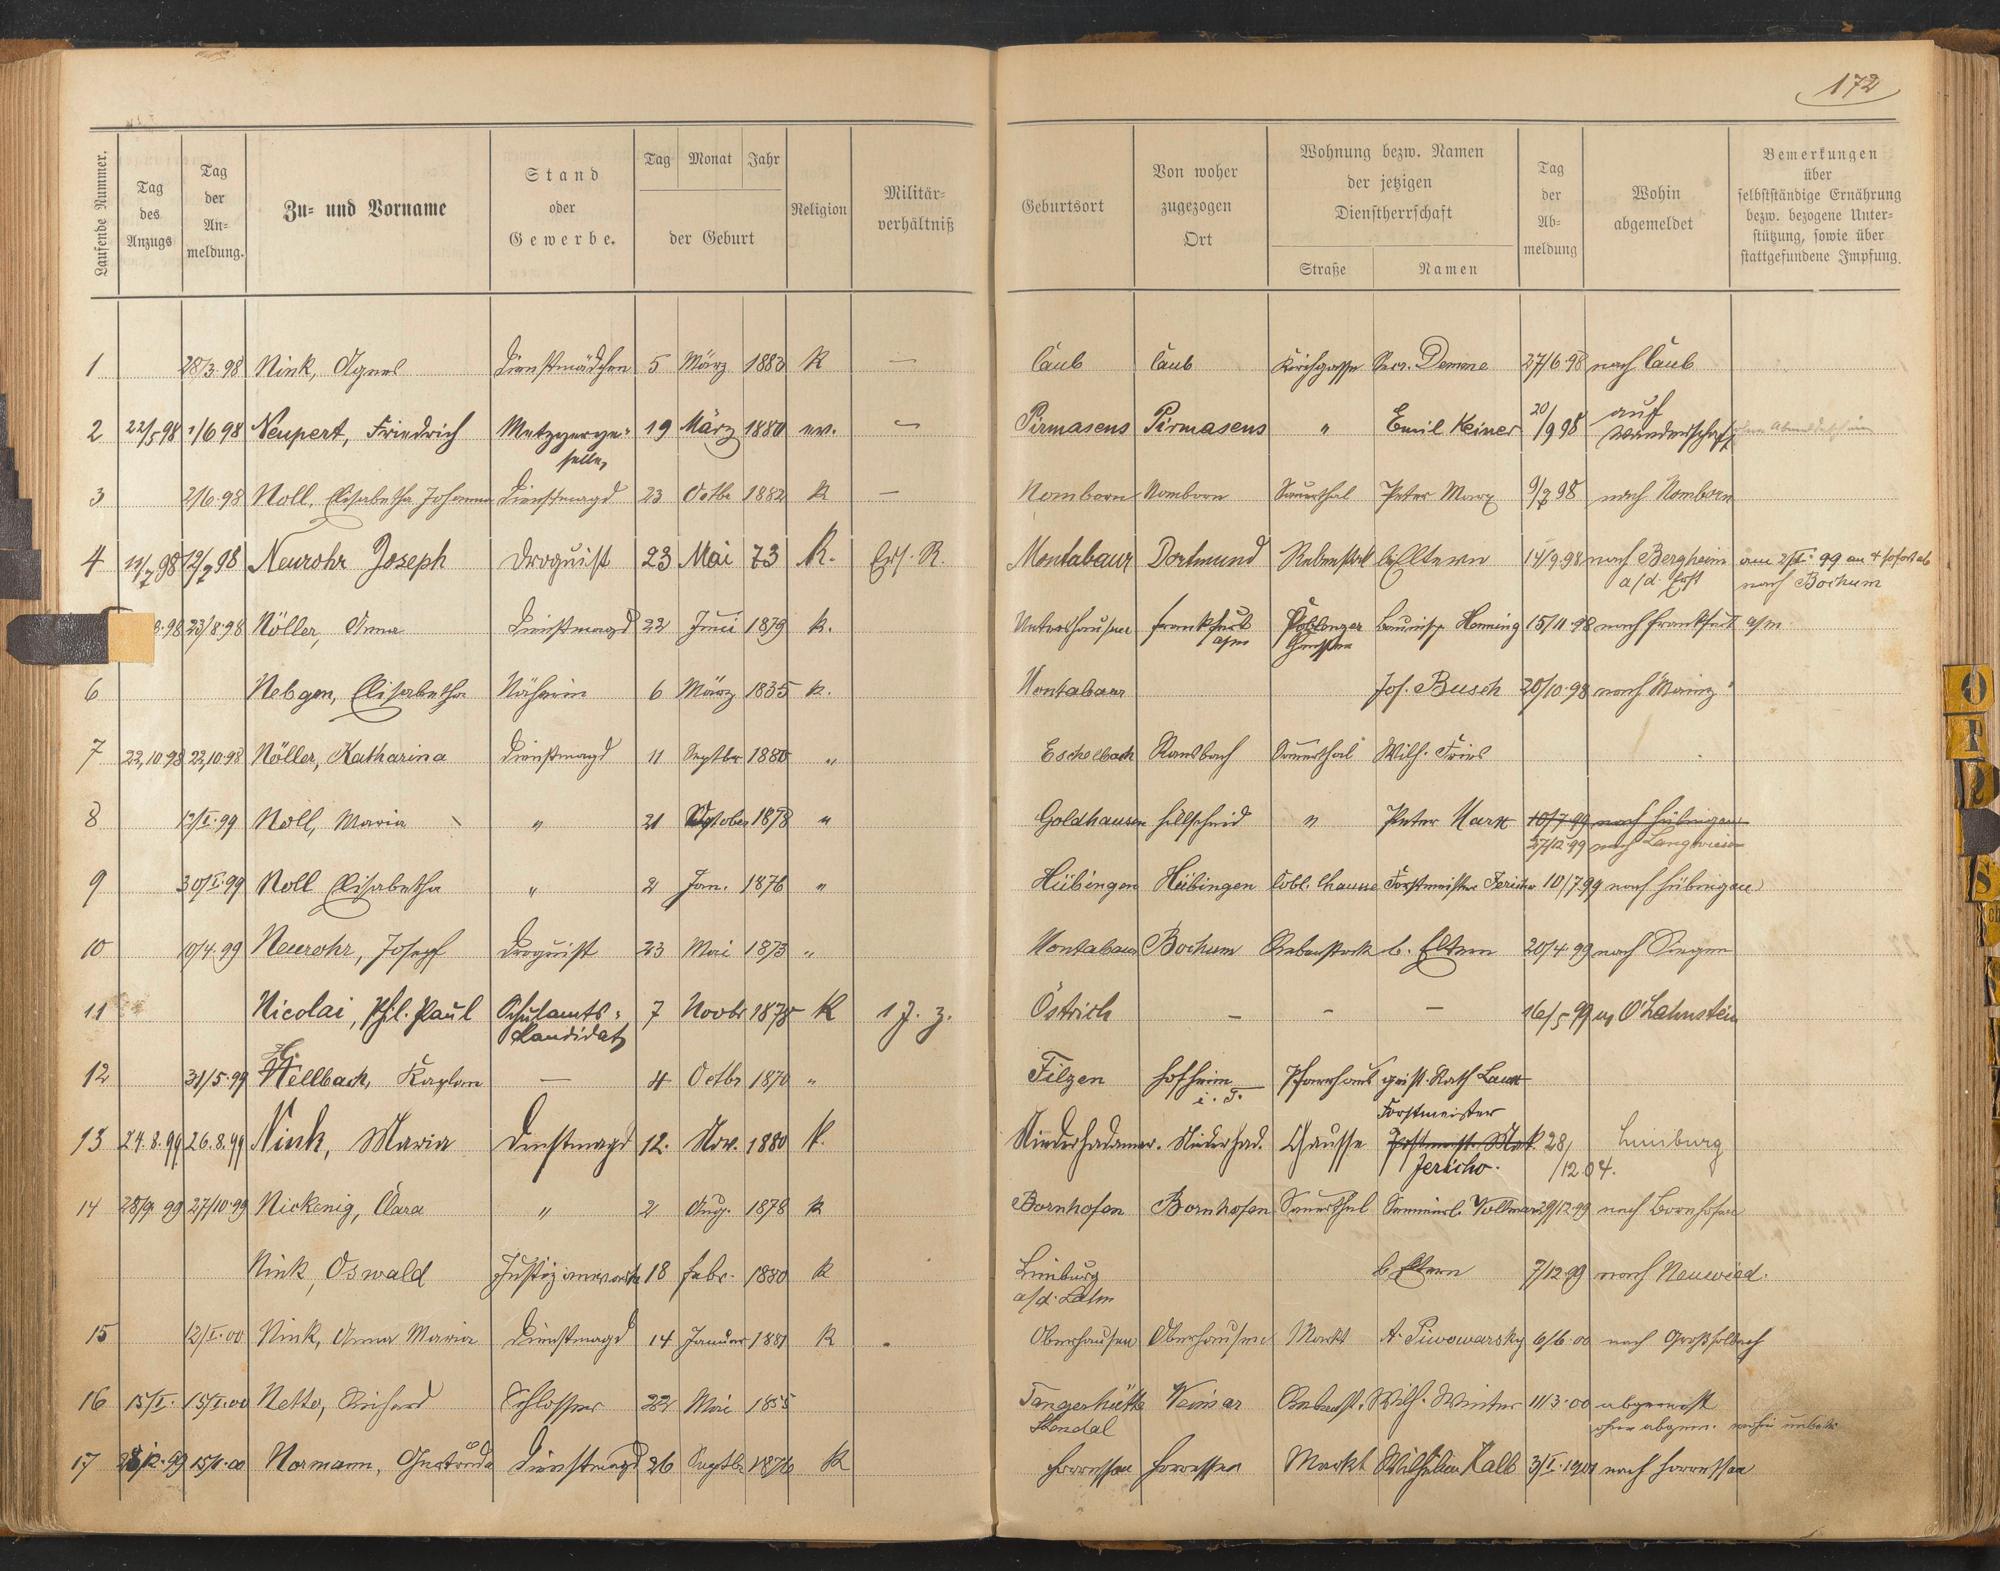 172
Laufende Nummer. Tag des Anzugs Tag der An- meldung. Zu- und Vorname Stand oder Gewerbe. Tag Monat Jahr der Geburt Religion Militär- verhältniß Geburtsort Von woher zugezogen Ort Wohnung bezw. Namen der jetzigen Dienstherrschaft Straße Namen Tag der Ab- meldung Wohin abgemeldet Bemerkungen über selbstständige Ernährung bezw. bezogene Unter- stützung, sowie über stattgefundene Impfung.
1 28/3.98 Nink, Agnes Dienstmädchen 5 März 1883 K — Caub Caub Kirchgasse Secr. Demme 27/6.98 nach Caub
2 22/5 98 1/6 98 Neupert, Friedrich Metzgerge- 19 März 1880 ev. — Pirmasens Pirmasens " Emil Keiner 20/9 98 auf Wanderschaft
selle
3 2/6.98 Noll, Elisabetha Johanna Dienstmagd 23 Octbr 1882 K — Nomborn Nomborn Sauerthal Peter Marx 9/7 98 nach Nomborn
4 11/7 98 12/7 98 Neurohr Joseph Droguist 23 Mai 73 K. Ers. R. Montabaur Dortmund Rebenstock b/Eltern 14/9.98 nach Bergheim am 2/I. 99 an + sofort ab
a/d. Erft nach Bochum
8.98 23/8.98 Nöller, Anna Dienstmagd 22 Juni 1879 K. Untershausen Frankfurt Coblenzer Bauinsp. Henning 15/11.98 nach Frankfurt a/m
a/m Chaussee
6 Nebgen, Elisabetha Näherin 6 März 1835 K. Montabaur Jos. Busch 20/10.98 nach Mainz
7 22,10 98 22,10.98 Nöller, Katharina Dienstmagd 11 Septbr 1880 " Eschelbach Ransbach Sauerthal Wilh. Fries
8 12/I.99 Noll, Maria " 21 October 1878 " Goldhausen Hillscheid " Peter Marx 10/7.99 nach Hübingen
27/12.99 nach Langwiesen
9 30/I.99 Noll Elisabetha " 2 Jan. 1876 " Hübingen Hübingen Cobl. Chausse Forstmeister Jericho 10/7.99 nach Hübingen
10 10/4.99 Neurohr, Josef Droguist 23 Mai 1873 " Montabaur Bochum Rebenstock b. Eltern 20/4.99 nach Siegen
11 Nicolai, Phl. Paul Schulamts- 7 Novbr 1878 K 1 J. z. Östrich — — — 16/5 99 n. O'Lahnstein
Kandidat
12 31/5.99 Hellbach, Kaplan — 4 Octbr 1870 " Filzen Hofheim Pfarrhaus geistl. Rath Laux
i. T.
13 24.8.99 26.8.99 Nink, Maria Dienstmagd 12. Nov. 1880 K. Niederhadamar. Niederhad. Chausse Forstmeister Jericho. 28/12.04. Limburg
14 28/9 99 27/10.99 Nickenig, Clara " 2 Aug. 1878 K Bornhofen Bornhofen Sauerthal Seminarl. Vollmar 29/12.99 nach Bornhofen
Nink, Oswald Justizanwärter 18 Febr. 1880 K Limburg b Eltern 7/12.99 nach Neuwied.
a/d. Lahn
15 12/I.00 Nink, Anna Maria Dienstmagd 14 Januar 1881 K Oberhausen Oberhausen Markt A. Piwowarsky 6/6.00 nach Großholbach
16 15/I. 15/I.00 Netto, Richard Schlosser 22 Mai 1855 Tangerhütte Weimar Rebenst. Wilh. Winter 11/3.00 abgereist
Stendal ohne abgem. wohin unbek.
17 28/12.99 15/1.00 Normann, Gertrude Dienstmagd 26 Septbr 1876 K Horressen Horressen Markt Wilhelm Kalb 3/I.1901 nach Horressen